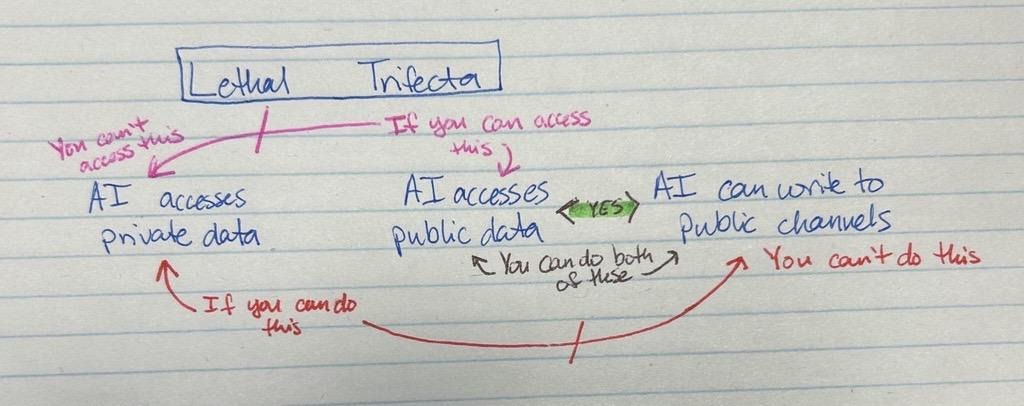 Lethal Trifecta
You can't
access this
If you can access
this
AI accesses
private data
AI accesses
public data
YES
AI can write to
public channels
You can do both
of these
You can't do this
If you can do
this